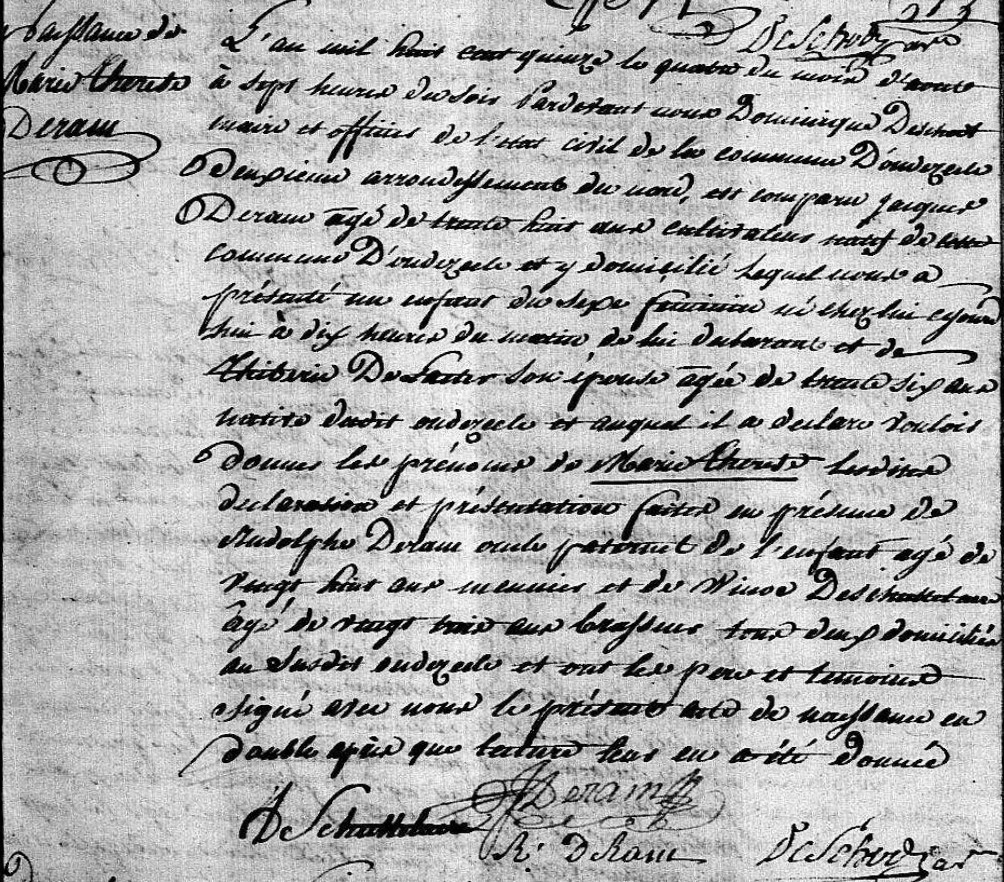 Naissance de
Marie Therese
Deram
L'an mil huit cent quinze le quatre du mois d'aout
à sept heures du soir Pardevant nous Dominique Deschodt
maire et officier de l'etat civil de la commune D'oudezeele
Deuxieme arrondissement du nord, est comparu jacques
Deram agé de trente huit ans cultivateur natif de cette
commune D'oudezeele et y domicilié lequel nous a
présenté un enfant du sexe feminin né chez lui cejourd
hui à dix heures du matin de lui declarant et de
De son épouse agée de trente six ans
native dudit oudezeele et auquel il a declaré vouloir
donner les prénoms de Marie Therese lesdites
declaration et présentation faites en présence de
Rudolphe Deram oncle paternel de l'enfant agé de
vingt huit ans meunier et de Winoc Deschuttelaere
âgé de vingt trois ans brasseur tous deux domiciliés
au susdit oudezeele et ont les pere et temoins
signé avec nous le présent acte de naissance en
double après que lecture leur en a été donnée
DeSchuttelaere
Deram
R. DRam
DeSchodt